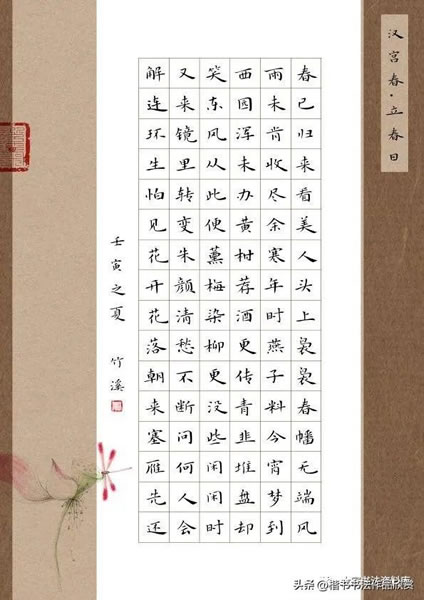 汉宫春·立春日
春已归来看美人头上袅袅春幡无端风
雨未肯收尽余寒年时燕子料今宵梦到
西园浑未办黄树荐酒更传青韭堆盘却
笑东风从此便薰梅染柳更没些闲闲时
又来镜里转变朱颜清愁不断问何人会
解连环生怕见花开花落朝来塞雁先还
壬寅之夏 竹溪
头条 @楷书书法作品欣赏